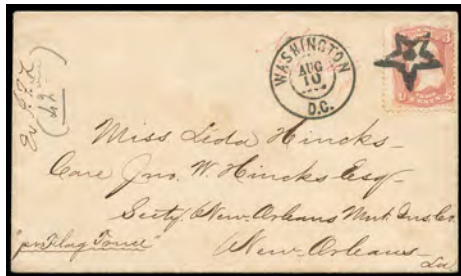 WASHINGTON
AUG
10
D.C.
3
CENTS
Miss Lida Hincks
Care Jno. W. Hincks Esq
Secty New Orleans Mut. Ins. Co.
New Orleans
La